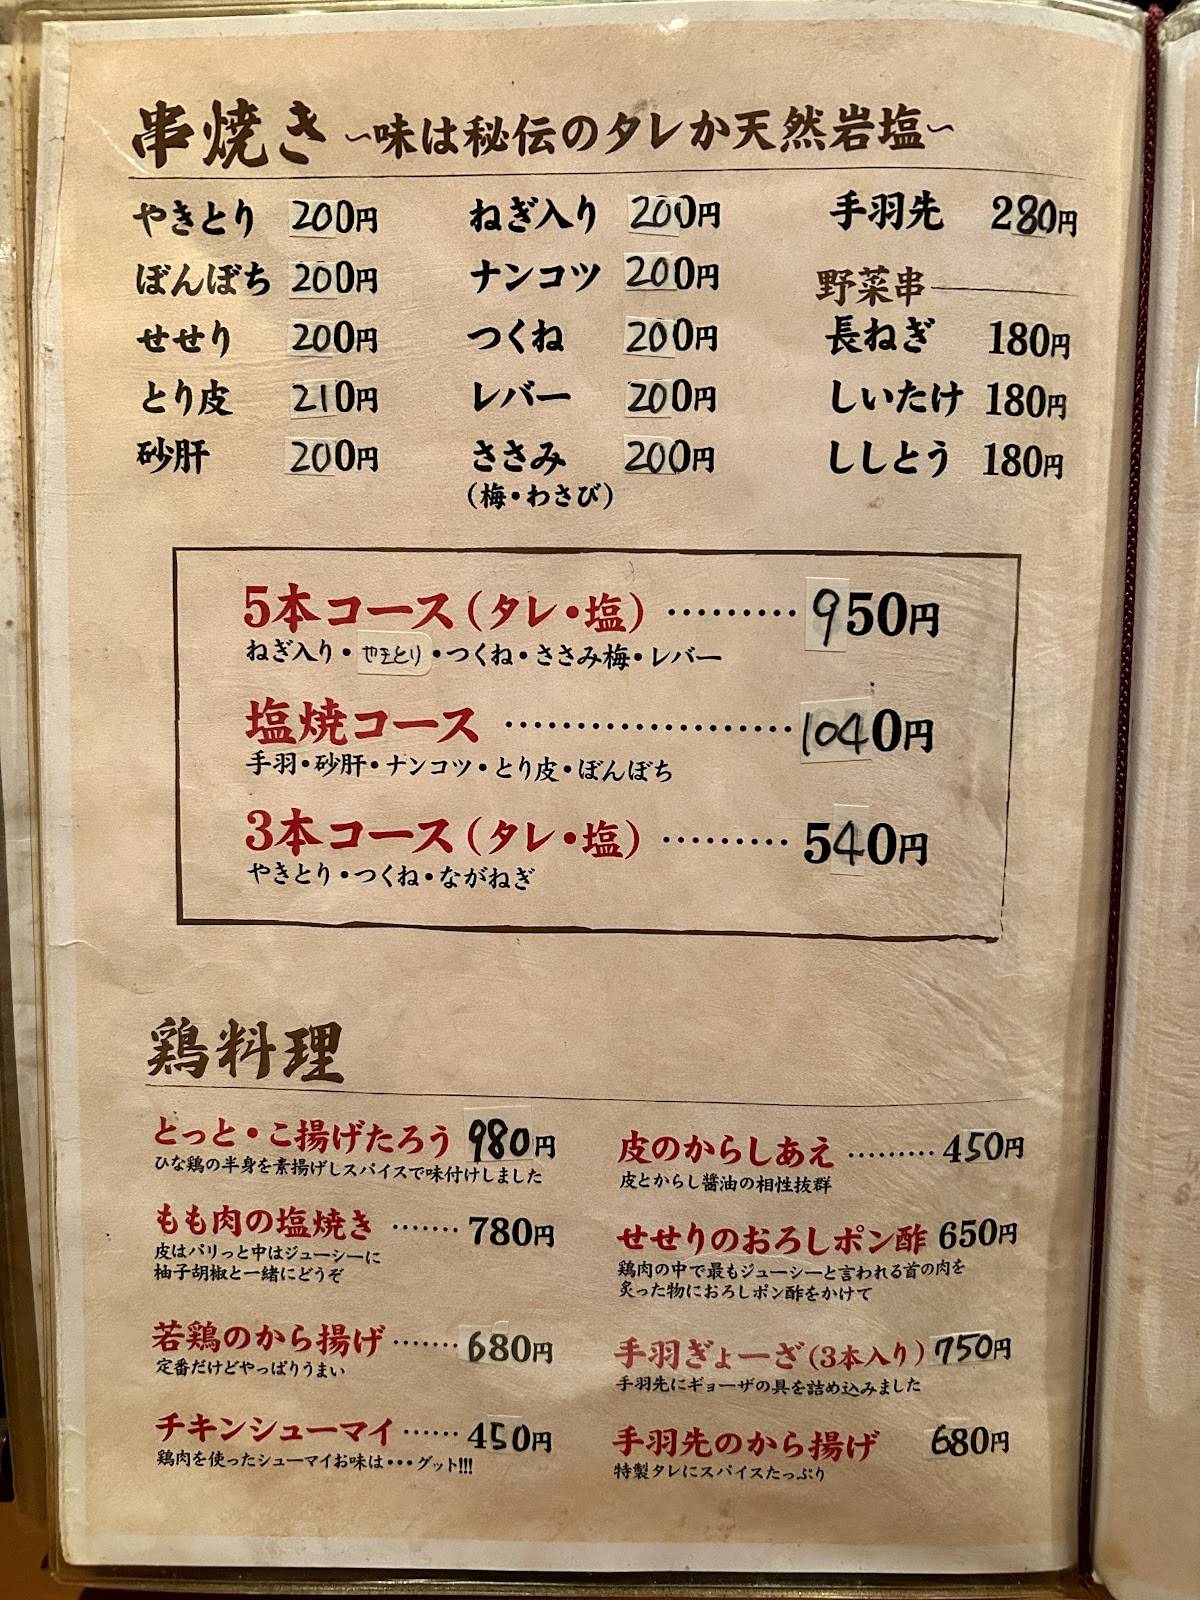 串焼き ~味は秘伝のタレか天然岩塩~
やきとり 200円
ぼんぼち 200円
せせり 200円
とり皮 210円
砂肝 200円
ねぎ入り 200円
ナンコツ 200円
つくね 200円
レバー 200円
ささみ 200円
(梅・わさび)
手羽先 280円
野菜串
長ねぎ 180円
しいたけ 180円
ししとう 180円
5本コース(タレ・塩) ········· 950円
ねぎ入り・やきとり・つくね・ささみ梅・レバー
塩焼コース ···················· 1040円
手羽・砂肝・ナンコツ・とり皮・ぼんぼち
3本コース(タレ・塩) ········· 540円
やきとり・つくね・ながねぎ
鶏料理
とっと・こ揚げたろう 980円
ひな鶏の半身を素揚げしスパイスで味付けしました
もも肉の塩焼き ······ 780円
皮はパリっと中はジューシーに
柚子胡椒と一緒にどうぞ
若鶏のから揚げ ······ 680円
定番だけどやっぱりうまい
チキンシューマイ ······ 450円
鶏肉を使ったシューマイお味は・・・グット!!!
皮のからしあえ ········· 450円
皮とからし醬油の相性抜群
せせりのおろしポン酢 650円
鶏肉の中で最もジューシーと言われる首の肉を
炙った物におろしポン酢をかけて
手羽ぎょーざ(3本入り) 750円
手羽先にギョーザの具を詰め込みました
手羽先のから揚げ 680円
特製タレにスパイスたっぷり